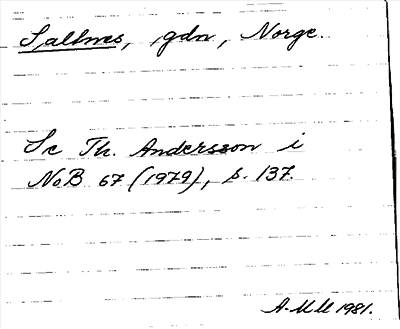 Saltnes, gdn, Norge.
Se Th. Andersson i
NoB 67 (1979), s. 137.
A-M M 1981.